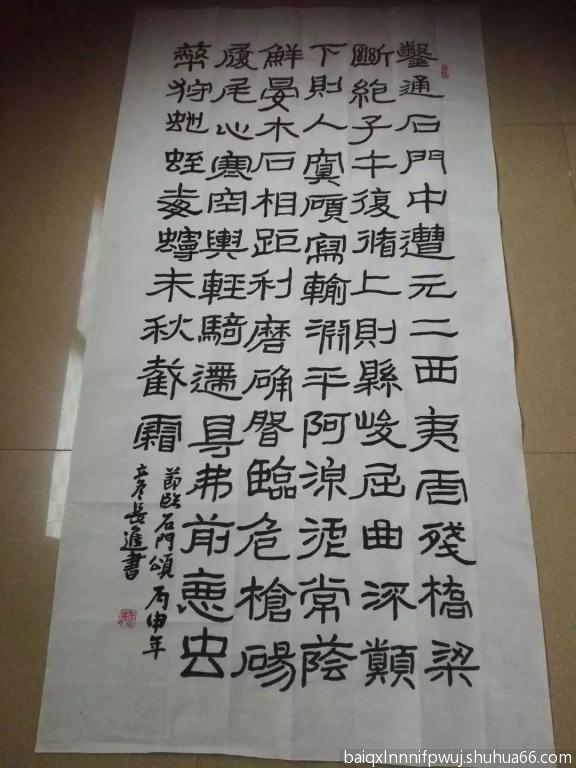 鑿通石門中遭元二西夷虐殘橋梁
斷絶子午復循上則縣峻屈曲深顛
下則入冥廎寫輸淵平阿湶泥常蔭
鮮晏木石相距利磨确磐臨危槍碭
履尾心寒空輿輕騎遰㝵弗前惡虫
狩虵蛭毒未秋截霜
節臨石門頌 丙申年
彥長進書
baiqxlnnnifpwuj.shuhua66.com